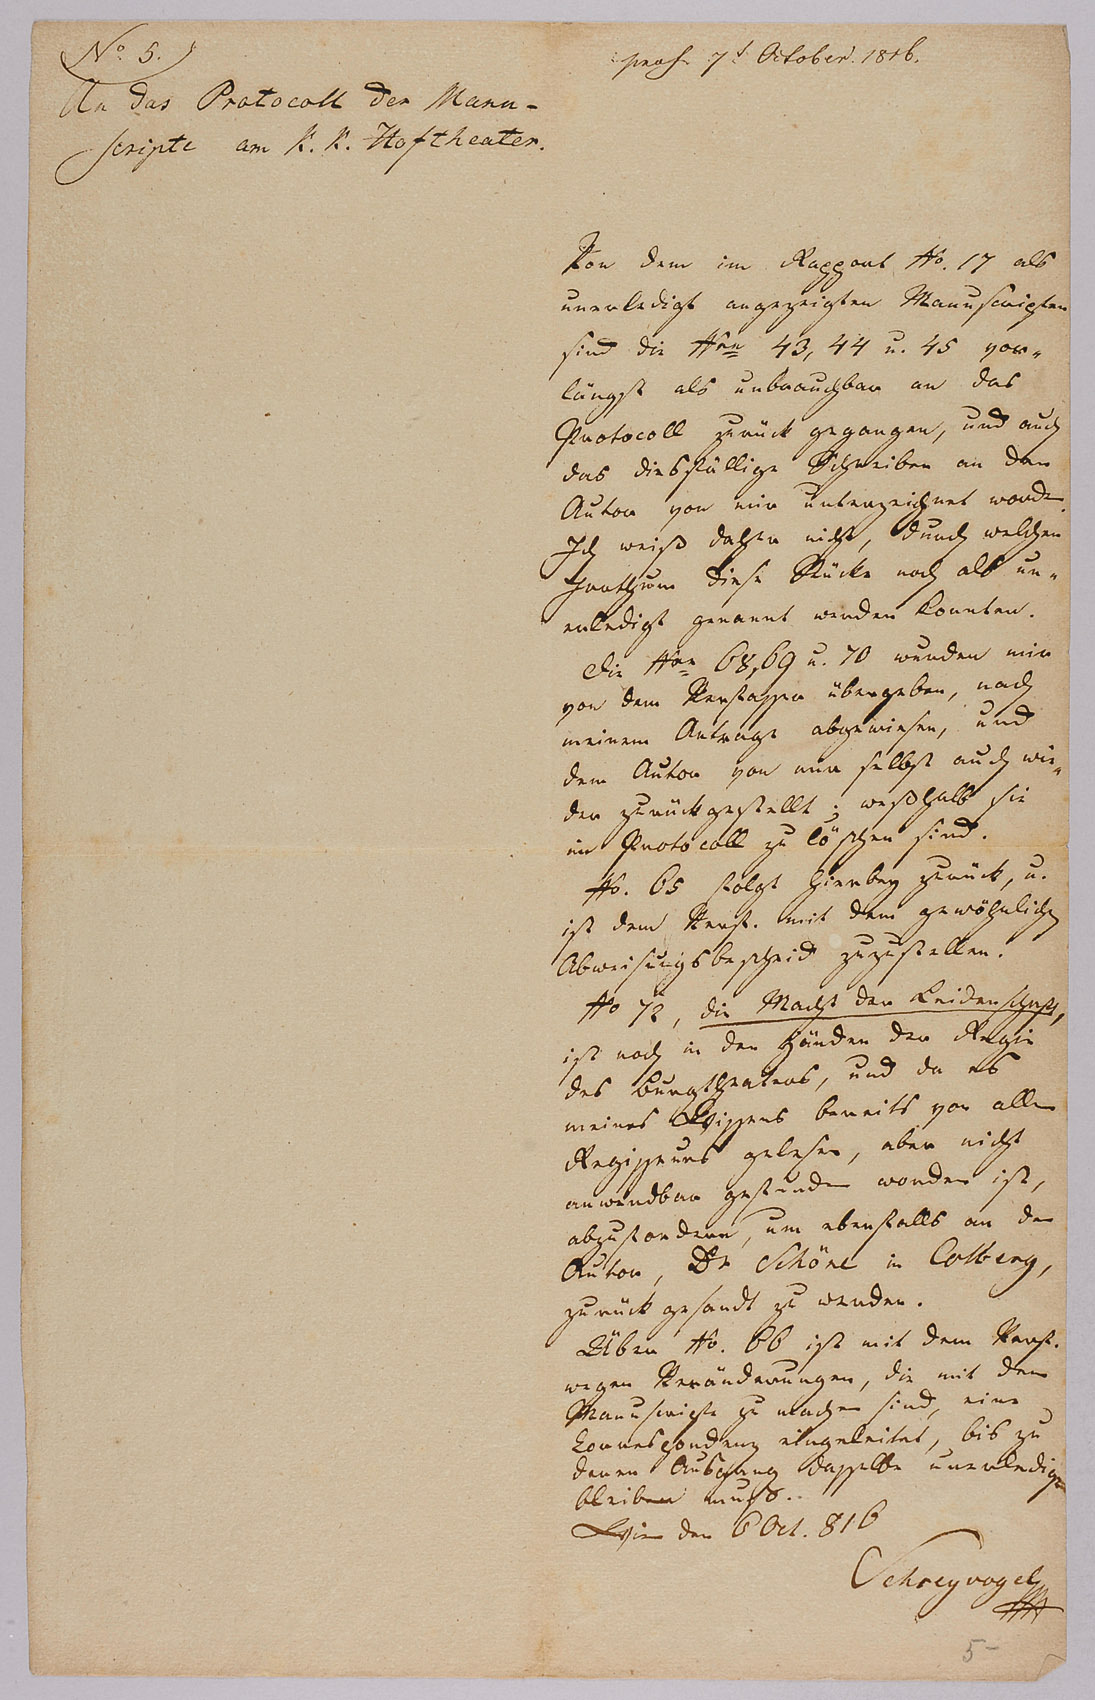 No 5.
praes. 7t October. 1816.
An das Protocoll der Manu-
scripte am K. K. Hoftheater.
Von dem im Rapport No. 17 als
unerledigt angezeigten Manuscripten
sind die Nrn 43, 44 u. 45 vor-
längst als unbrauchbar an das
Protocoll zurück gegangen, und auch
das diesfällige Schreiben an den
Autor von mir unterzeichnet worden.
Ich weiß daher nicht, durch welchen
Irrthum diese Stücke noch als un-
erledigt genannt werden konnten.
Die Nrn 68, 69 u. 70 wurden mir
von dem Verfasser übergeben, nach
meinem Antrage abgewiesen, und
dem Autor von mir selbst auch wie-
der zurückgestellt; weßhalb sie
im Protocoll zu löschen sind.
No. 65 folgt hierbey zurück, u.
ist dem Verf. mit dem gewöhnlichen
Abweisungsbescheid zuzustellen.
No 72, die Macht der Leidenschaft,
ist noch in den Händen der Regie
des Burgtheaters, und da es
meines Wissens bereits von allen
Regisseurs gelesen, aber nicht
anwendbar gefunden worden ist,
abzufordern, um ebenfalls an den
Autor, Dr Schöne in Colberg,
zurück gesandt zu werden.
Über No. 66 ist mit dem Verf.
wegen Veränderungen, die mit dem
Manuscripte zu machen sind, eine
Correspondenz eingeleitet, bis zu
deren Ausgang dasselbe unerledigt
bleiben muß.
Wien den 6 Oct. 816
Schreyvogel
5-